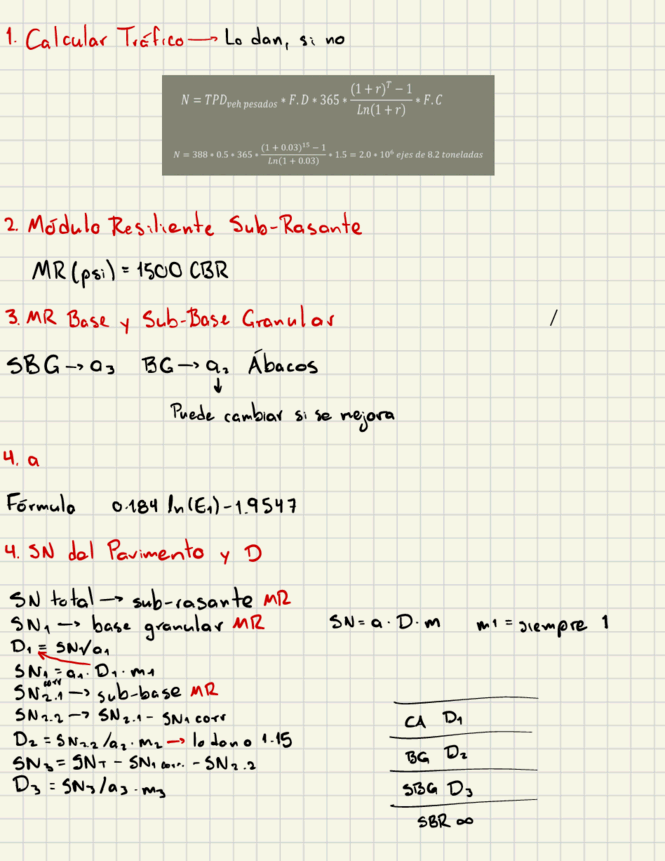 1. Calcular Tráfico → Lo dan, si no
N = TPD_{veh pesados} * F.D * 365 * \frac{(1+r)^T - 1}{Ln(1+r)} * F.C
N = 388 * 0.5 * 365 * \frac{(1+0.03)^{15} - 1}{Ln(1+0.03)} * 1.5 = 2.0 * 10^6 ejes de 8.2 toneladas
2. Módulo Resiliente Sub-Rasante
MR (psi) = 1500 CBR
3. MR Base y Sub-Base Granular
SBG → a3 BG → a2 Ábacos
↓
Puede cambiar si se mejora
4. a
Fórmula 0.184 ln(E1) - 1.9547
4. SN del Pavimento y D
SN total → sub-rasante MR
SN1 → base granular MR SN = a · D · m m1 = siempre 1
D1 = SN1/a1
SN1 corr = a1 · D1 · m1
SN2.1 → sub-base MR
SN2.2 → SN2.1 - SN1 corr
D2 = SN2.2/a2 · m2 → lo dan o 1.15
SN3 = SNT - SN1 corr. - SN2.2
D3 = SN3/a3 · m3
CA D1
BG D2
SBG D3
SBR ∞